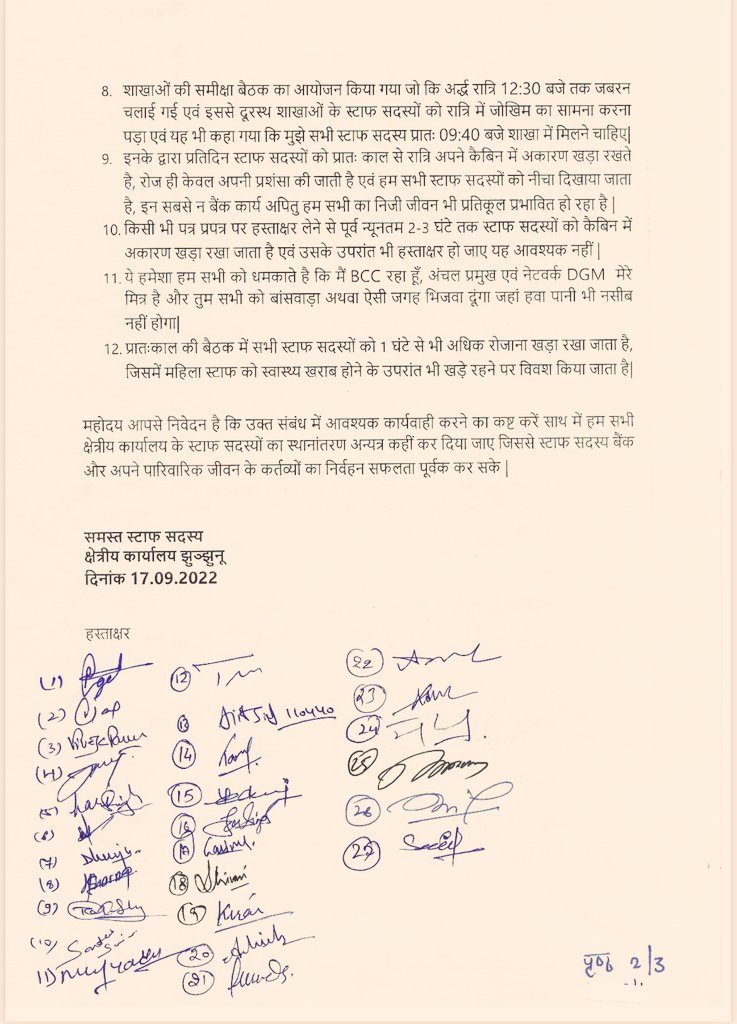 8. शाखाओं की समीक्षा बैठक का आयोजन किया गया जो कि अर्द्ध रात्रि 12:30 बजे तक जबरन
चलाई गई एवं इससे दूरस्थ शाखाओं के स्टाफ सदस्यों को रात्रि में जोखिम का सामना करना
पड़ा एवं यह भी कहा गया कि मुझे सभी स्टाफ सदस्य प्रातः 09:40 बजे शाखा में मिलने चाहिए|
9. इनके द्वारा प्रतिदिन स्टाफ सदस्यों को प्रातः काल से रात्रि अपने कैबिन में अकारण खड़ा रखते
है, रोज ही केवल अपनी प्रशंसा की जाती है एवं हम सभी स्टाफ सदस्यों को नीचा दिखाया जाता
है, इन सबसे न बैंक कार्य अपितु हम सभी का निजी जीवन भी प्रतिकूल प्रभावित हो रहा है |
10. किसी भी पत्र प्रपत्र पर हस्ताक्षर लेने से पूर्व न्यूनतम 2-3 घंटे तक स्टाफ सदस्यों को कैबिन में
अकारण खड़ा रखा जाता है एवं उसके उपरांत भी हस्ताक्षर हो जाए यह आवश्यक नहीं |
11. ये हमेशा हम सभी को धमकाते है कि मैं BCC रहा हूँ, अंचल प्रमुख एवं नेटवर्क DGM मेरे
मित्र है और तुम सभी को बांसवाड़ा अथवा ऐसी जगह भिजवा दूंगा जहां हवा पानी भी नसीब
नहीं होगा|
12. प्रातःकाल की बैठक में सभी स्टाफ सदस्यों को 1 घंटे से भी अधिक रोजाना खड़ा रखा जाता है,
जिसमें महिला स्टाफ को स्वास्थ्य खराब होने के उपरांत भी खड़े रहने पर विवश किया जाता है|
महोदय आपसे निवेदन है कि उक्त संबंध में आवश्यक कार्यवाही करने का कष्ट करें साथ में हम सभी
क्षेत्रीय कार्यालय के स्टाफ सदस्यों का स्थानांतरण अन्यत्र कहीं कर दिया जाए जिससे स्टाफ सदस्य बैंक
और अपने पारिवारिक जीवन के कर्तव्यों का निर्वहन सफलता पूर्वक कर सके |
समस्त स्टाफ सदस्य
क्षेत्रीय कार्यालय झुञ्झुनू
दिनांक 17.09.2022
हस्ताक्षर
(1)
(2)
(3)
(4)
(5)
(6)
(7)
(8)
(9)
(10)
11)
12
13 110440
14
15
16
17
18
19 Kiran
20 Ashish
21
22
23
24
25
26
27
पृष्ठ 2/3